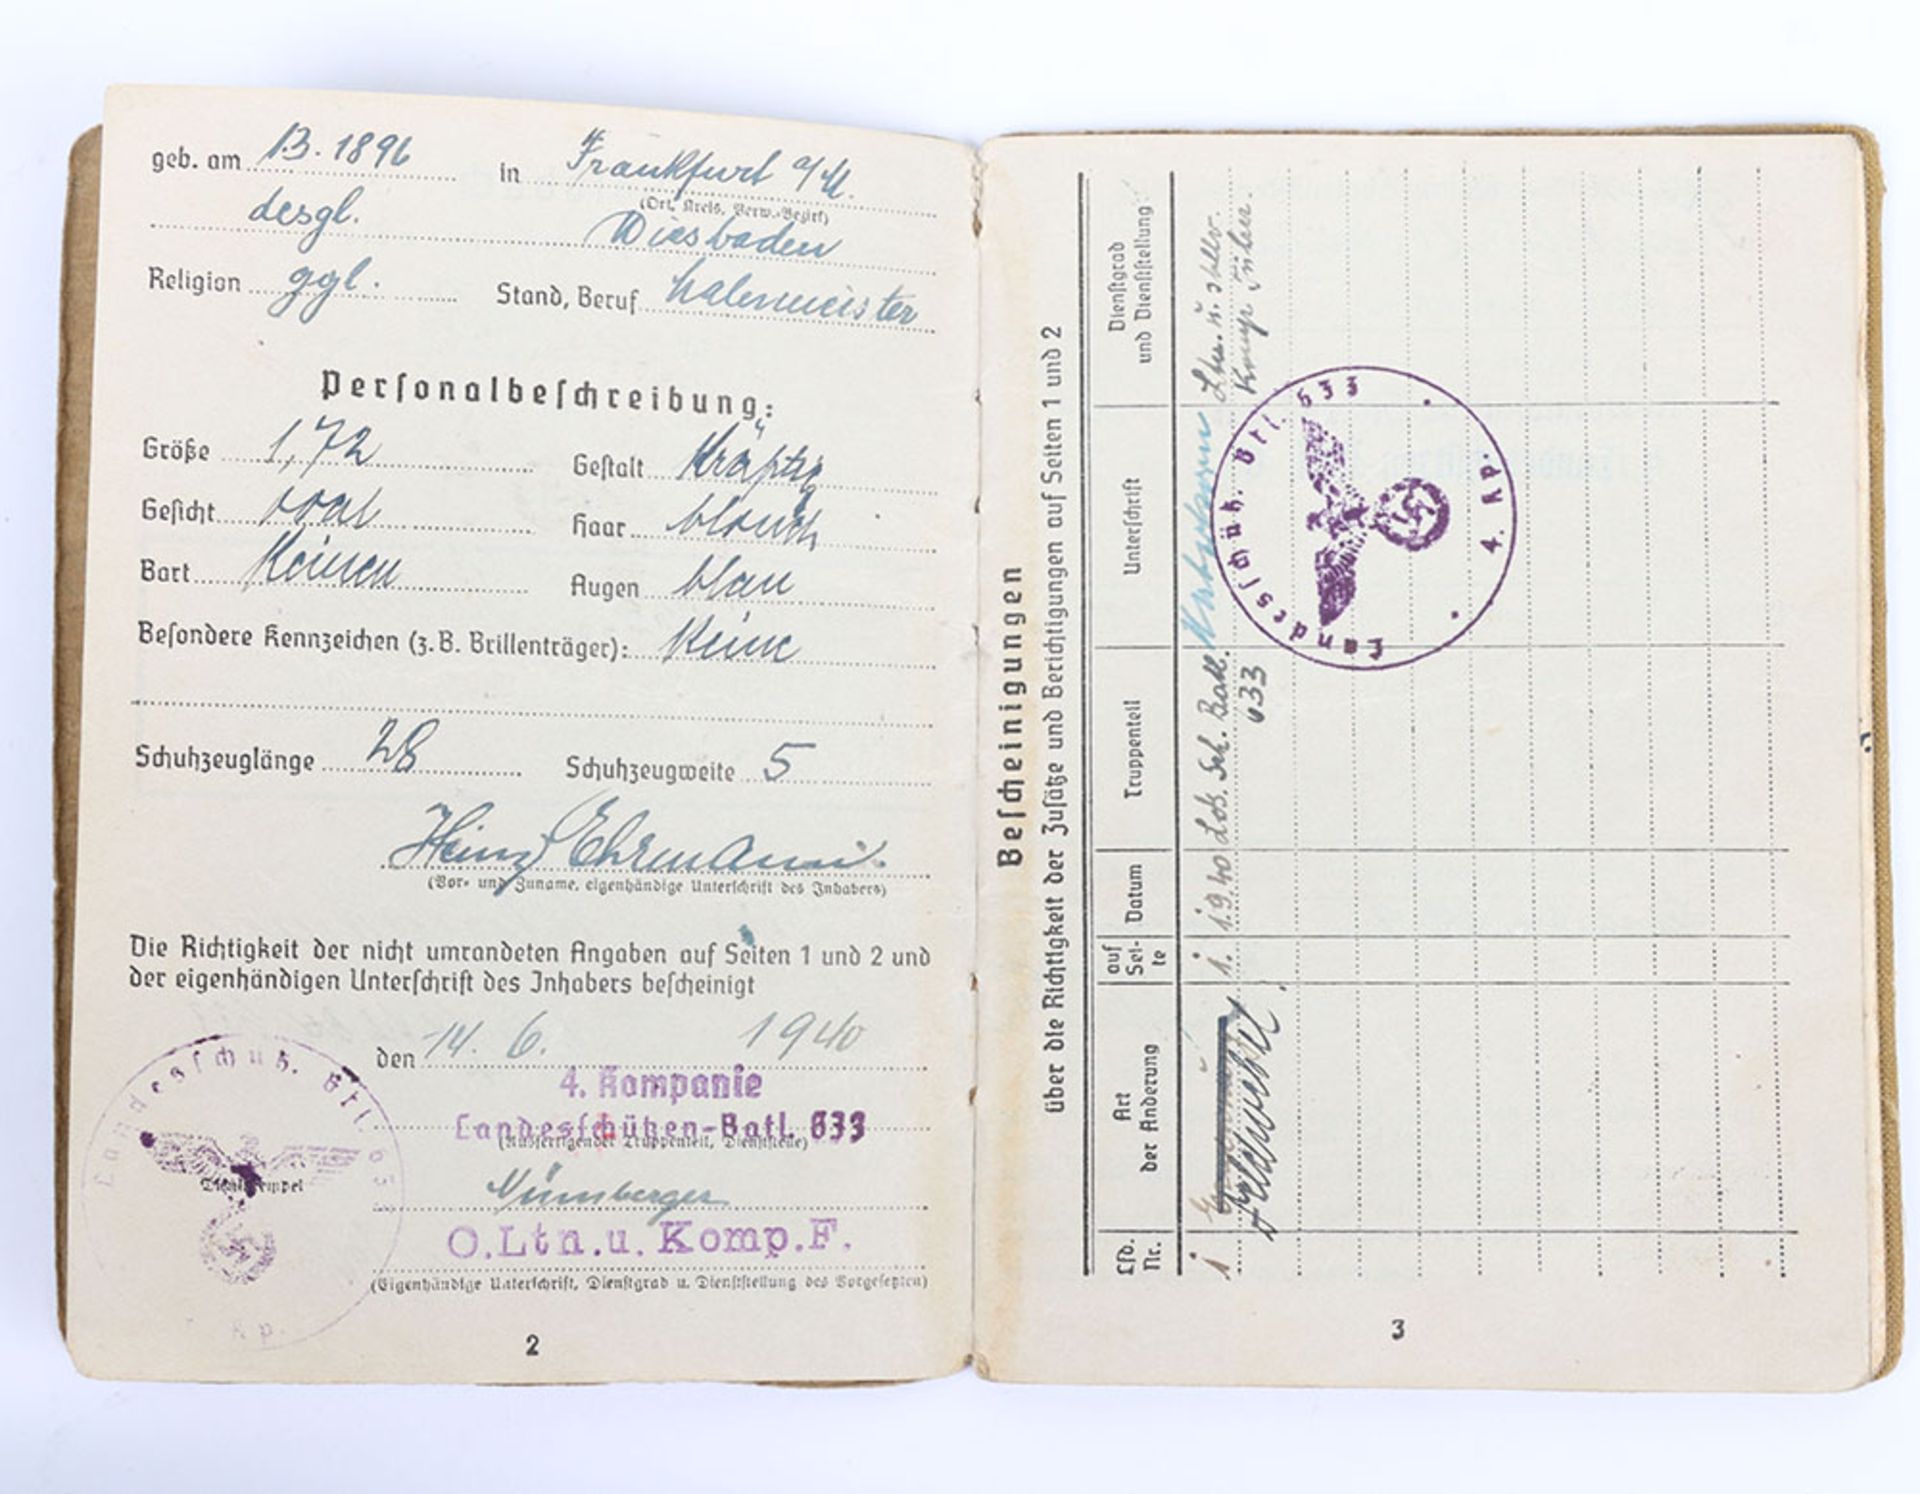 geb. am 1.3. 1896 in Frankfurt a/M.
(Ort, Kreis, Verw.-Bezirk)
desgl. Wiesbaden
Religion ggl. Stand, Beruf
Personalbeschreibung:
Größe 1,72 Gestalt Kräftig
Gesicht oval Haar blond
Bart Keinen Augen blau
Besondere Kennzeichen (z. B. Brillenträger): Keine
Schuhzeuglänge 28 Schuhzeugweite 5
Heinz Ehrmann
(Vor- und Zuname, eigenhändige Unterschrift des Inhabers)
Die Richtigkeit der nicht umrandeten Angaben auf Seiten 1 und 2 und
der eigenhändigen Unterschrift des Inhabers bescheinigt
den 14. 6. 1940
4. Kompanie
Landesschützen-Batl. 633
(Ausfertigender Truppenteil, Dienststelle)
Nürnberger
O.Ltn.u.Komp.F.
(Eigenhändige Unterschrift, Dienstgrad u. Dienststellung des Vorgesetzten)
Landesschütz. Btl. 633
Dienststempel
Kp.
2
Bescheinigungen
über die Richtigkeit der Zusätze und Berichtigungen auf Seiten 1 und 2
Lfd. Nr.
Art der Änderung
auf Seite
Datum
Truppenteil
Unterschrift
Dienstgrad und Dienststellung
1 Feldwebel 1. 1.9.40 Lds. Sch. Batl. 633
Ltn. u. stellv. Komp. Führer.
Landesschütz. Btl. 633
4. Kp.
3